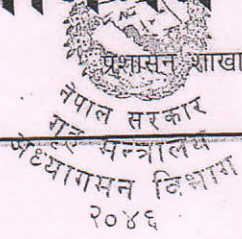 प्रशासन शाखा
नेपाल सरकार
गृह मन्त्रालय
अध्यागमन विभाग
२०४६